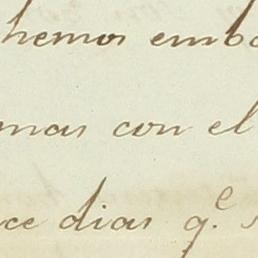 hemos emba
mas con el
ce dias q.e s